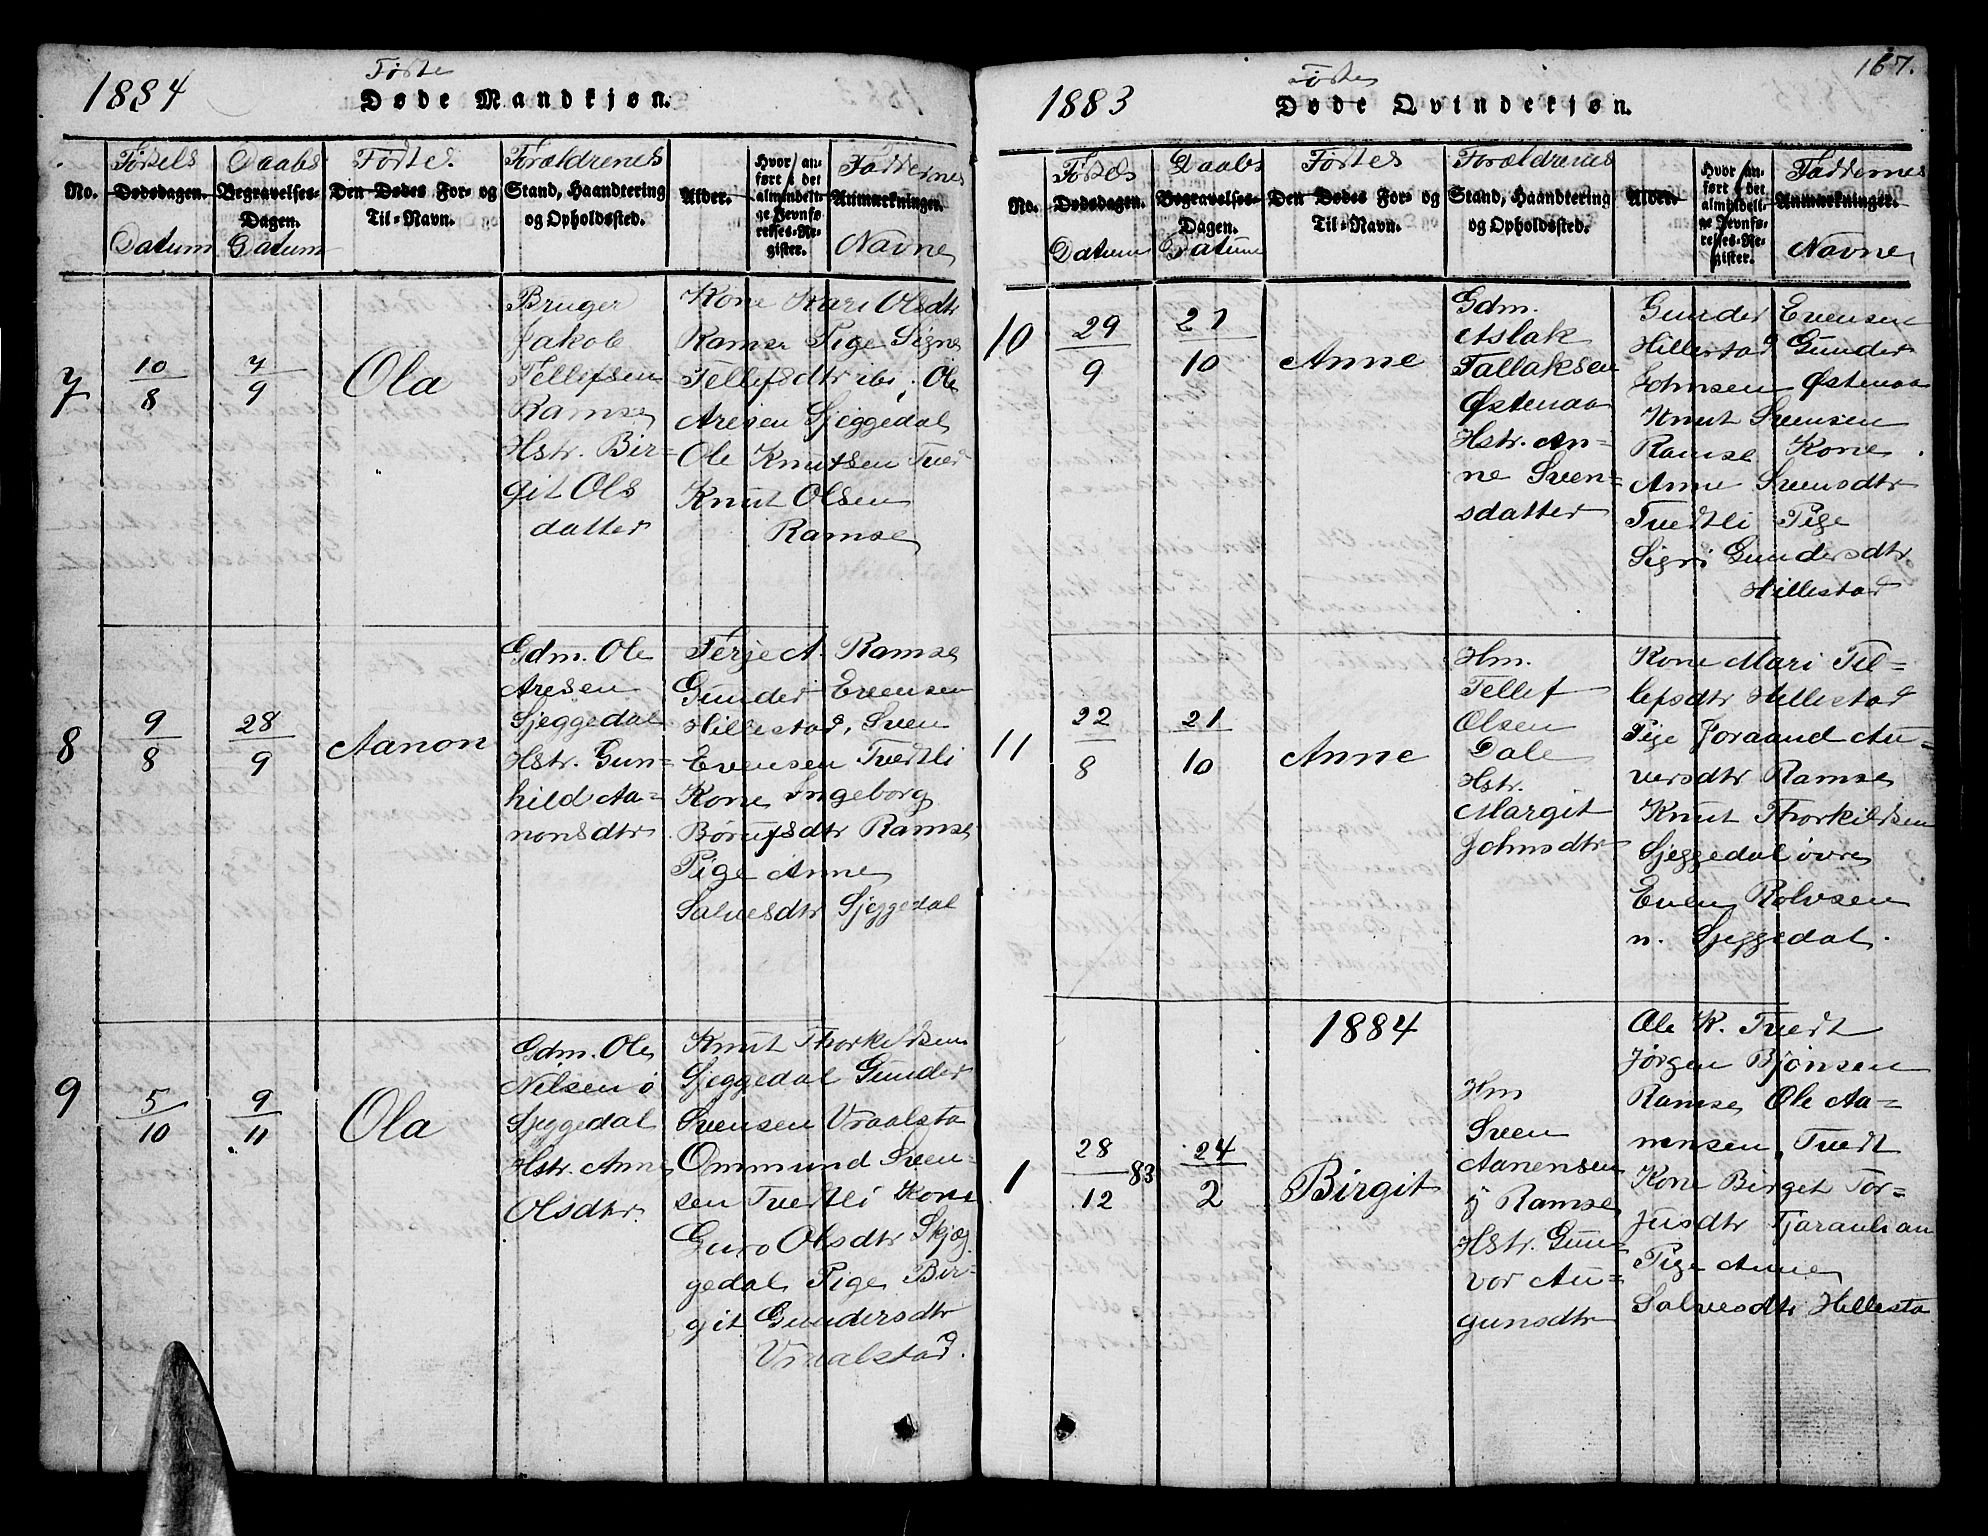 1884
Fødte
Døde Mandkjøn.
No.
Fødsels
Dødsdagen.
Datum
Daabs
Begravelses-
Dagen.
Datum
Fødtes
Den Dødes For- og
Til-Navn.
Forældrenes
Stand, Haandtering
og Opholdssted.
Alder.
Hvor an-
ført i det
almindeli-
ge Jevnfø-
relses-Re-
gister.
Faddernes
Anmærkninger.
Navne
7
10/8
7/9
Ola
Bruger
Jakob
Tellefsen
Ramse
Hstr. Bir-
git Ols
datter
Kone Kari Olsdtr
Ramse Pige Signe
Tellefsdtr ibi, Ole
Aresen Sjeggedal
Ole Knutsen Tved
Knut Olsen
Ramse
8
9/8
28/9
Aanon
Gdm. Ole
Aresen
Sjeggedal
Hstr. Gun-
hild Aa-
nonsdtr
Terje A. Ramse
Gunder Evensen
Hillestad, Sven
Evensen Tvedtli
Kone Ingeborg
Børufsdtr Ramse
Pige Anne
Salvesdtr Sjeggedal
9
5/10
9/11
Ola
Gdm. Ole
Nilsen ø
Sjeggedal
Hstr. Anne
Olsdtr.
Knut Thorkildsen
Sjeggedal Gunder
Svensen Vraalsta
Ommund Sven-
sen Tvedtli Kone
Guro Olsdtr Skjeg
gedal Pige Bir-
git Gundersdtr
Vraalstad.
167.
1883
Fødte
Døde Qvindekjøn.
No.
Fødsels
Dødsdagen.
Datum
Daabs
Begravelses-
Dagen.
Datum
Fødtes
Den Dødes For- og
Til-Navn.
Forældrenes
Stand, Haandtering
og Opholdssted.
Alder.
Hvor an-
ført i det
almindeli-
ge Jevnfø-
relses-Re-
gister.
Faddernes
Anmærkninger.
Navne
10
29/9
21/10
Anne
Gdm.
Aslak
Tallaksen
Østenaa
Hstr. An-
ne Sven-
sdatter
Gunder Evensen
Hillestad Gunder
Johnsen Østenaa
Knut Svensen
Ramse Kone
Anne Svensdtr
Tvedtli Pige
Sigri Gundersdtr
Hillestad
11
22/8
21/10
Anne
Hm.
Tellef
Olsen
Dale
Hstr.
Margit
Johnsdtr
Kone Mari Tel-
lefsdtr Hillestad
Pige Joraand Au-
versdtr Ramse
Knut Thorkildsen
Sjeggedal øvre
Even Rolvsen
n. Sjeggedal.
1884
1
28/12 83
24/2
Birgit
Hm
Sven
Aanensen
y Ramse
Hstr. Gun-
vor Au-
gunsdtr
Ole K. Tvedt
Jørgen Bjønsen
Ramse Ole Aa-
nensen, Tvedt
Kone Birget Tor-
jusdtr Tjaraulian
Pige Anne
Salvesdtr Hillesta